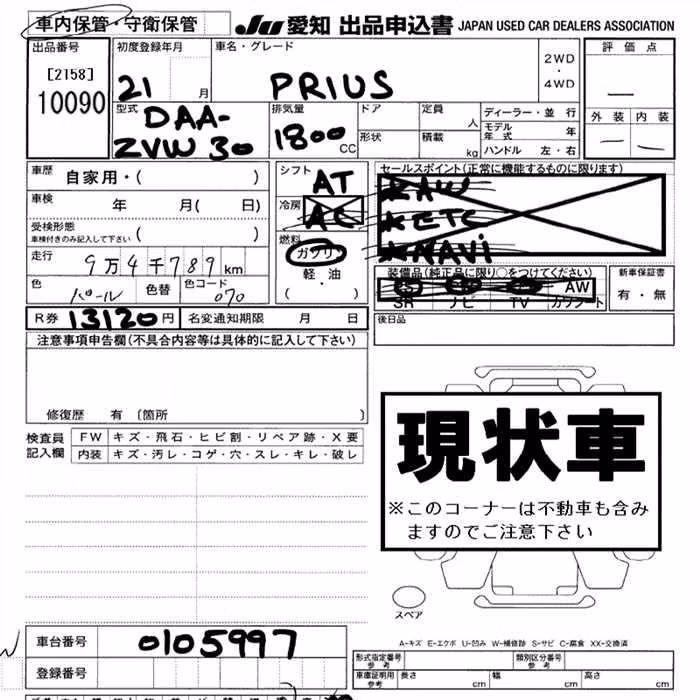 車内保管・守衛保管
JU 愛知 出品申込書 JAPAN USED CAR DEALERS ASSOCIATION
出品番号
[2158]
10090
初度登録年月
21 月
車名・グレード
PRIUS
2WD
・
4WD
評価点
外装 内装
型式
DAA-
ZVW30
排気量
1800
CC
ドア
定員
人
形状
積載
kg
ディーラー・並行
モデル年式 年
ハンドル 左・右
車歴 自家用・( )
車検 年 月( 日)
受検形態
車検付きのみ記入して下さい ( )
走行 9万4千789km
色 パール 色替 色コード 070
R券 13120円 名変通知期限 月 日
シフト
AT
冷房
AC
燃料
ガソリン
軽・油
( )
セールスポイント(正常に機能するものに限ります)
★AW
★ETC
★NAVi
装備品(純正品に限り○をつけてください)
AW
SR ナビ TV カワシート
新車保証書
有・無
後日品
注意事項申告欄(不具合内容等は具体的に記入して下さい)
修復歴 有 〔箇所 〕
検査員
記入欄
FW キズ・飛石・ヒビ割・リペア跡・X要
内装 キズ・汚レ・コゲ・穴・スレ・キレ・破レ
現状車
※このコーナーは不動車も含み
ますのでご注意下さい
スペア
A-キズ E-エクボ U-凹み W-補修跡 S-サビ C-腐食 XX-交換済
車台番号 0105997
登録番号
形式指定番号
参考
類別区分番号
参考
車庫証明用
参考
長さ cm 幅 cm 高さ cm